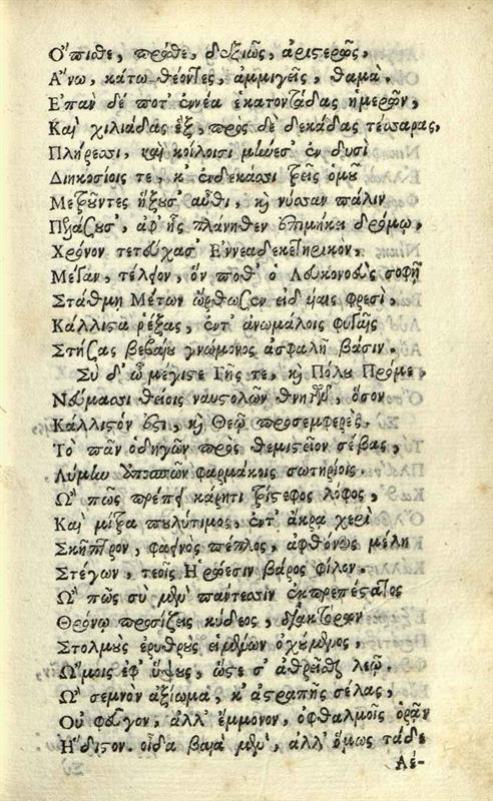 Ο῎πιοθε, πρόθε, δεξιῶς, ἀριστερῶς,
Α῎νω, κάτω θέοντες, ἀμμιγεῖς, θαμὰ.
Ε᾿πὰν δέ ποτ᾽ ἐννέα ἑκατοντάδας ἡμερῶν,
Καὶ χιλιάδας ἓξ, πρὸς δὲ δεκάδας τέσσαρας,
Πλήρεσσι, καὶ κοίλοισι μήνεσ᾽ ἐν δυσὶ
Διηκοσίοις τε, κ᾽ ἐνδεκάσσι τρεῖς ὁμοῦ
Μετροῦντες ἥξουσ᾽ αὖθι, καὶ νύσσαν πάλιν
ἀφ᾽ ἧς πλάνηθεν ἐπιμήκει δρόμῳ,
Χρόνον τετεύχασ᾽ Ε᾿ννεαδεκετηρικὸν,
Μέγαν, τέλειον, ὅν ποθ᾽ ὁ Λευκονοεὺς σοφῇ
Στάθμῃ Μέτων ὤρθωζεν εἰδήαις φρεσὶ,
Κάλλιστα ῥέξας, ἐντ᾽ ἀνωμάλοις φυγαῖς
Στήξας βεβαίου γνώμονος ἀσφαλῆ βάσιν.
Σὺ δ᾽ ὦ μέγιστε Γῆς τε, καὶ Πόλου Πρόμε,
Νεύμασσι θείοις ναυστολῶν θνητῶν, ὅσον
Κάλλιστόν ἐστι, καὶ Θεῷ προσεμφερὲς,
Τὸ πᾶν ὁδηγῶν πρὸς θεμιστεῖον σέβας,
Λύμην φαρμάκοις σωτηρίοις.
Ω῍ πῶς πρέπει κάρητι τρίστεφος λόφος,
Καὶ μίτρα πυλύτιμος, ἐντ᾽ ἄκρᾳ χερὶ
Σκῆπτρον, φαεινὸς πέπλος, ἀφθόνως μέλη
Στέγων, τεοῖς Η῾ρώεσιν βάρος φίλον.
Ω῍ πῶς σὺ μὲν παντεσσιν ἐκπρεπέστατος
Θρόνῳ προσίζεις κύδεος, διακτόρων
Στολμοὺς ἐρυθροὺς εἱμένων ὀχύμενος,
Ω῎μοις ἐφ᾽ ὕψους, ὥστε σ᾽ ἀθρεῖσθαι λεῷ.
Ω῍ σεμνὸν ἀξίωμα, κ᾽ ἀστραπῆς σέλας,
Οὐ φεῦγον, ἀλλ᾽ ἔμμονον, ὀφθαλμοῖς ὁρᾷν
Η῞διστον. οἶδα βαιὰ μὲν, ἀλλ᾽ ὅμως τάδε
Αέ-